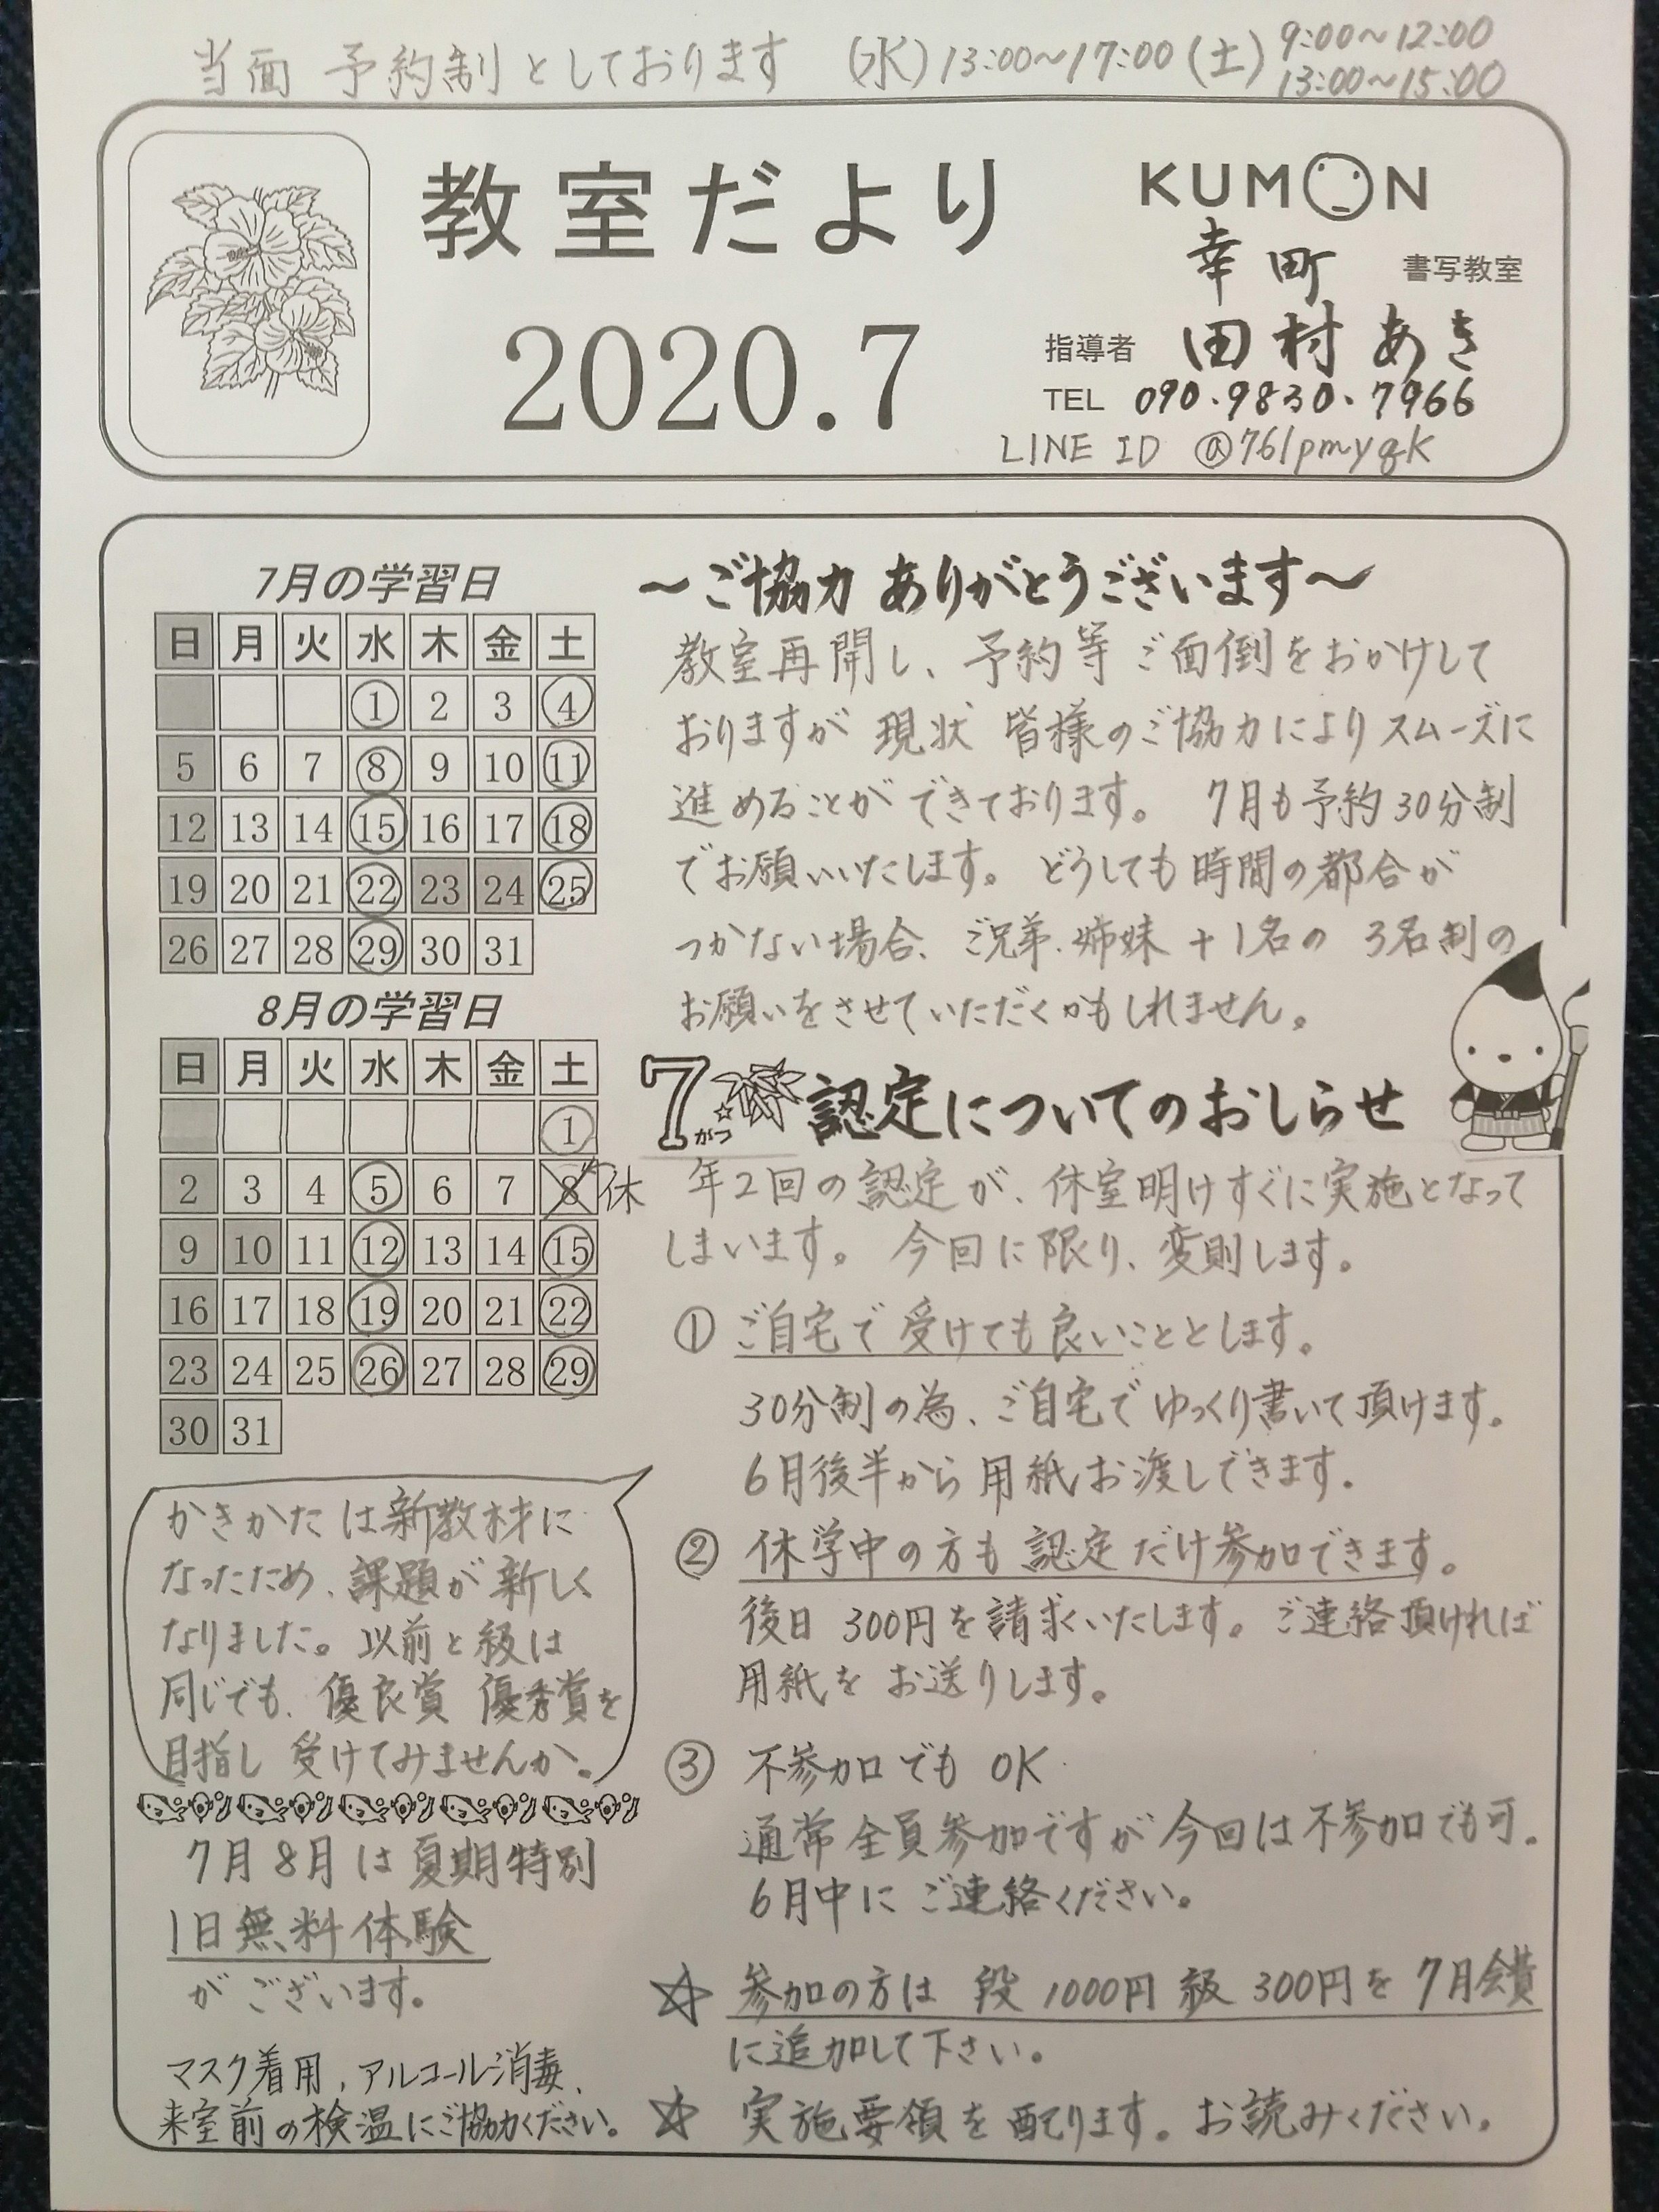 当面 予約制としております (水)13:00〜17:00 (土) 9:00〜12:00
13:00〜15:00
教室だより
2020.7
KUMON
幸町 書写教室
指導者 田村あき
TEL 090.9830.7966
LINE ID @761pmyqk
7月の学習日
日 月 火 水 木 金 土
1 2 3 4
5 6 7 8 9 10 11
12 13 14 15 16 17 18
19 20 21 22 23 24 25
26 27 28 29 30 31
8月の学習日
日 月 火 水 木 金 土
1
2 3 4 5 6 7 8 休
9 10 11 12 13 14 15
16 17 18 19 20 21 22
23 24 25 26 27 28 29
30 31
かきかたは新教材に
なったため、課題が新しく
なりました。以前と級は
同じでも、優良賞 優秀賞を
目指し 受けてみませんか。
7月8月は夏期特別
1日無料体験
がございます。
マスク着用,アルコール消毒、
来室前の検温にご協力ください。
〜ご協力 ありがとうございます〜
教室再開し、予約等ご面倒をおかけして
おりますが 現状 皆様のご協力によりスムーズに
進めることができております。 7月も予約30分制
でお願いいたします。どうしても時間の都合が
つかない場合、ご兄弟.姉妹+1名の 3名制の
お願いをさせていただくかもしれません。
7がつ 認定についてのおしらせ
年2回の認定が、休室明けすぐに実施となって
しまいます。今回に限り、変則します。
① ご自宅で受けても良いこととします。
30分制の為、ご自宅でゆっくり書いて頂けます。
6月後半から用紙お渡しできます.
② 休学中の方も認定だけ参加できます。
後日 300円を請求いたします。ご連絡頂ければ
用紙をお送りします。
③ 不参加でも OK
通常全員参加ですが今回は不参加でも可.
6月中にご連絡ください。
☆ 参加の方は 段 1000円 級 300円を7月会費
に追加して下さい。
☆ 実施要領を配ります。お読みください。